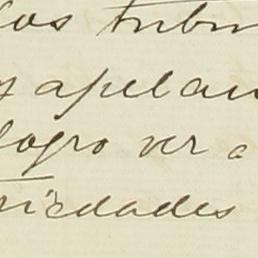 los tribun
s apelan
logro ver a
riedades